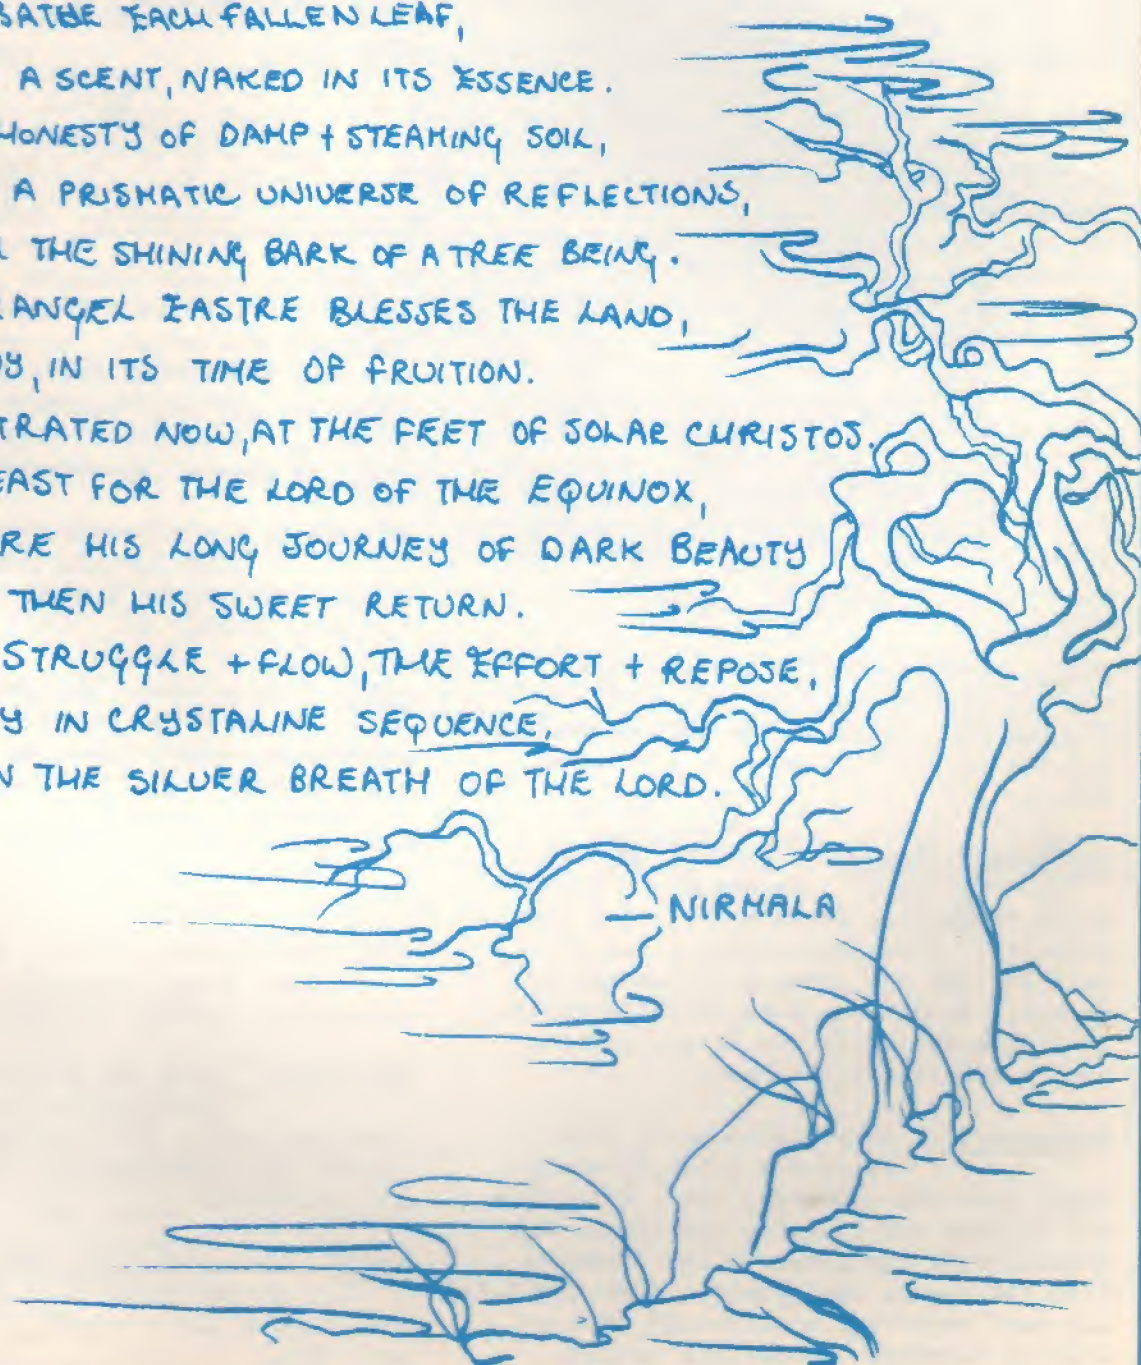 BATHE EACH FALLEN LEAF,
A SCENT, NAKED IN ITS ESSENCE.
HONESTY OF DAMP + STEAMING SOIL,
A PRISMATIC UNIVERSE OF REFLECTIONS,
THE SHINING BARK OF A TREE BEING.
ANGEL EASTRE BLESSES THE LAND,
Y, IN ITS TIME OF FRUITION.
TRATED NOW, AT THE FEET OF SOLAR CHRISTOS.
EAST FOR THE LORD OF THE EQUINOX,
RE HIS LONG JOURNEY OF DARK BEAUTY
THEN HIS SWEET RETURN.
STRUGGLE + FLOW, THE EFFORT + REPOSE,
Y IN CRYSTALINE SEQUENCE,
N THE SILVER BREATH OF THE LORD.
— NIRMALA